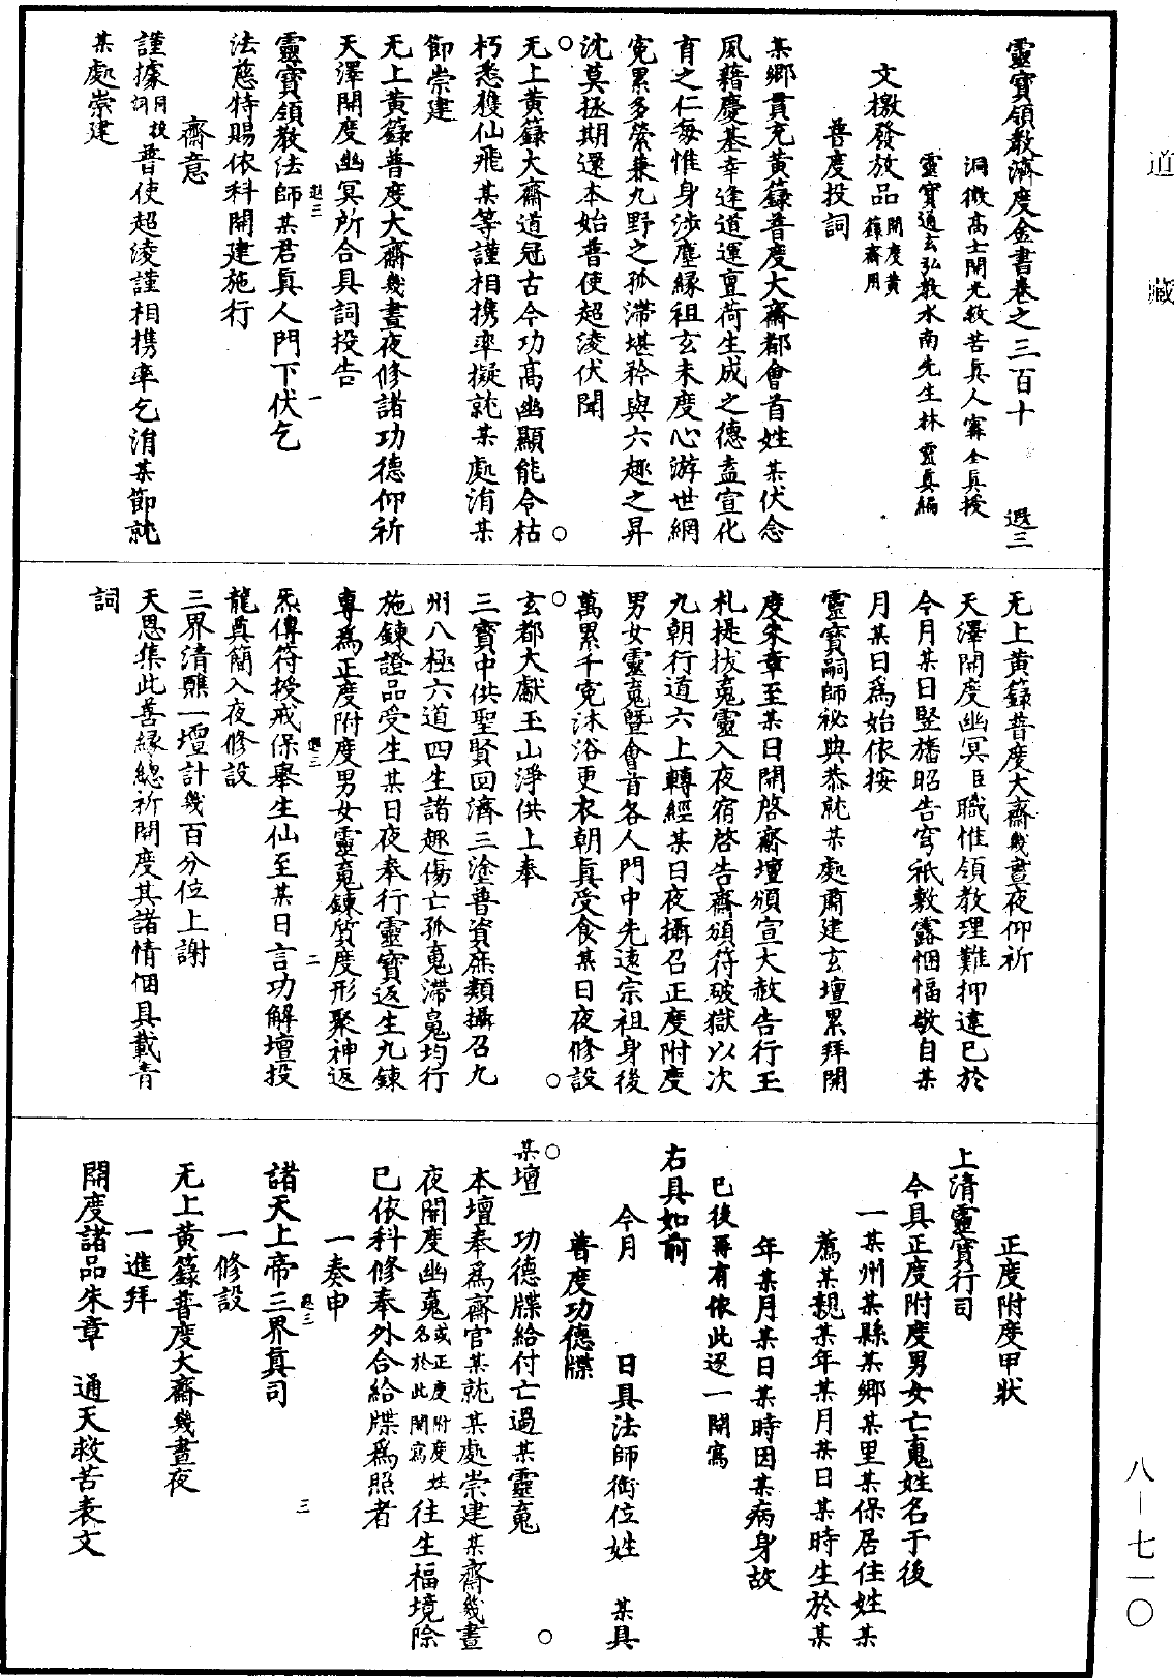 道藏
靈寶領教濟度金書卷之三百十　遐三
洞微高士開光救苦真人甯全真授
靈寶通玄弘教水南先生林靈真編
文檄發放品開度黃籙齋用
普度投詞
某鄉貫充黃籙普度大齋都會首姓某伏念
夙藉慶基幸逢道運亶荷生成之德盍宣化
育之仁每惟身涉塵緣祖玄未度心游世網
寃累多縈兼九野之孤滯堪矜與六趣之昇
沈莫拯期還本始普使超淩伏聞
无上黃籙大齋道冠古今功高幽顯能令枯
朽悉獲仙飛某等謹相携率擬就某處涓某
節崇建
无上黃籙普度大齋幾晝夜修諸功德仰祈
天澤開度幽冥所合具詞投告
靈寶領教法師某君真人門下伏乞
法慈特賜依科開建施行
齋意
謹據同投詞普使超淩謹相携率乞涓某節就
某處崇建
无上黃籙普度大齋幾晝夜仰祈
天澤開度幽冥臣職惟領教理難抑違已於
今月某日竪旛昭告穹祇敷露悃愊敬自某
月某日為始依按
靈寶嗣師祕典恭就某處肅建玄壇累拜開
度朱章至某日開啓齋壇頒宣大赦告行玉
札提拔䰟靈入夜宿啓告齋頒符破獄以次
九朝行道六上轉經某日夜攝召正度附度
男女靈䰟曁會首各人門中先遠宗祖身後
萬累千寃沐浴更衣朝真受食某日夜修設
玄都大獻玉山淨供上奉
三寶中供聖賢回濟三塗普資庶類攝召九
州八極六道四生諸趣傷亡孤䰟滯䰟均行
施鍊證品受生某日夜奉行靈寶返生九鍊
專為正度附度男女靈䰟鍊質度形聚神返
炁傳符授戒保舉生仙至某日言功解壇投
龍奠簡入夜修設
三界清醮一壇計幾百分位上謝
天恩集此善緣總祈開度其諸情悃具載青
詞
正度附度甲狀
上清靈寶行司
今具正度附度男女亡䰟姓名于後
一某州某縣某鄉某里某保居住姓某
薦某親某年某月某日某時生於某
年某月某日某時因某病身故
已後再有依此逐一開寫
右具如前
今月　日具法師銜位姓　某具
普度功德牒
某壇　功德牒給付亡過某靈䰟
本壇奉為齋官某就某處崇建某齋幾晝
夜開度幽䰟或正度附度姓名於此開寫往生福境除
已依科修奉外合給牒為照者
一奏申
諸天上帝三界真司
一修設
无上黃籙普度大齋幾晝夜
一進拜
開度諸品朱章　通天救苦表文
八－七一〇